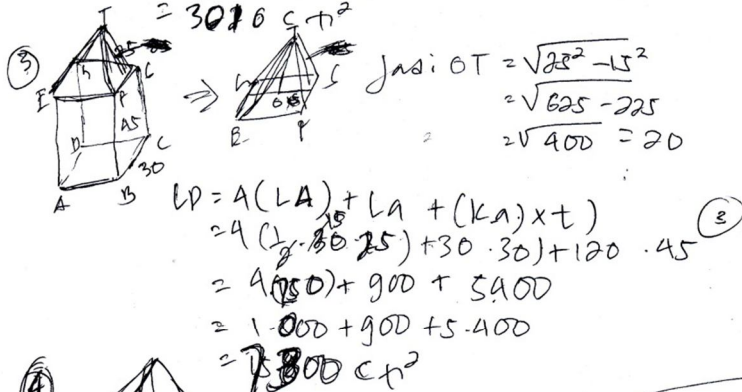 = 3010 cm²
③
T
E
P
45
C
30
A
B
⇒
T
E
P
Jadi OT = √25² - 15²
= √625 - 225
= √400 = 20
LP = 4(LΔ) + La + (Ka) x t)
= 4(½ · 30 · 25) + 30 · 30) + 120 · 45
15
③
= 4(250) + 900 + 5400
= 1.000 + 900 + 5.400
= 7300 cm²
④